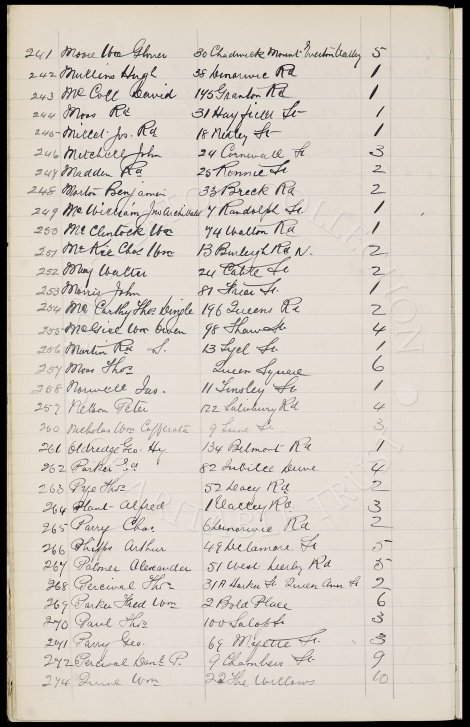 241 Moore Wm Glover 30 Chadwick Mount Everton Valley 5
242 Mullins Hugh 38 Dinorwic Rd 1
243 McColl David 145 Granton Rd 1
244 Moss Rd 31 Hayfield St 1
245 Millet Jos. Rd 18 St 1
246 Mitchell John 24 Cornwall St 3
247 Madden Rd 25 Rennie St 2
248 Morton Benjamin 33 Breck Rd 2
249 McWilliam Jno 7 Randolph St 1
250 McClintock Wm 74 Walton Rd 1
251 McKie Chas Wm 13 Burleigh Rd N. 2
252 May Walter 24 Cable St 2
253 Morris John 81 St. 1
254 McCarthy Thos Dingle 196 Queens Rd 2
255 McGire Wm Owen 98 Shaw St 4
256 Martin Rd S. 13 St 1
257 Moss Thos Queen Square 6
258 Norwell Jas. 11 Tinsley St 1
259 Nelson Peter 122 Salisbury Rd 4
260 Nicholas Wm Cafferata 9 Lune St. 3
261 Oldredge Geo. Hy. 134 Belmont Rd 1
262 Parker Ed 82 Jubilee Drive 4
263 Pye Thos 52 Lacey Rd 2
264 Plant Alfred 1 Rd 3
265 Parry Chas 6 Dinorwic Rd 2
266 Phipps Arthur 49 Delamore St 5
267 Palmer Alexander 51 West Derby Rd 5
268 Percival Thos 31A Harker St Queen Ann St 2
269 Parker Fred Wm 2 Bold Place 6
270 Paul Thos 100 Salop St 3
271 Parry Geo. 69 Myrtle St. 3
272 Percival Danl P. 9 Chambers St 9
274 Quine Wm 22 The Willows 10
COLLECTION
TRUST